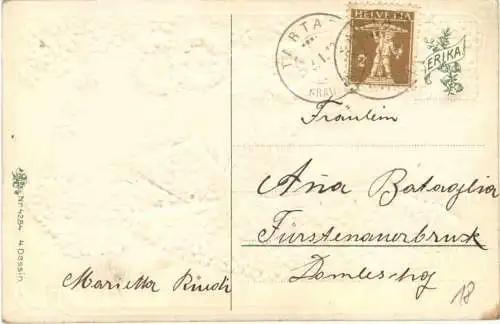 HELVETIA
2
TARTA
ERIKA
Fräulein
Ana Bataglia
Fürstenauerbruck
Domleschg
Marietta
18
Nr 4284 4 Dessin